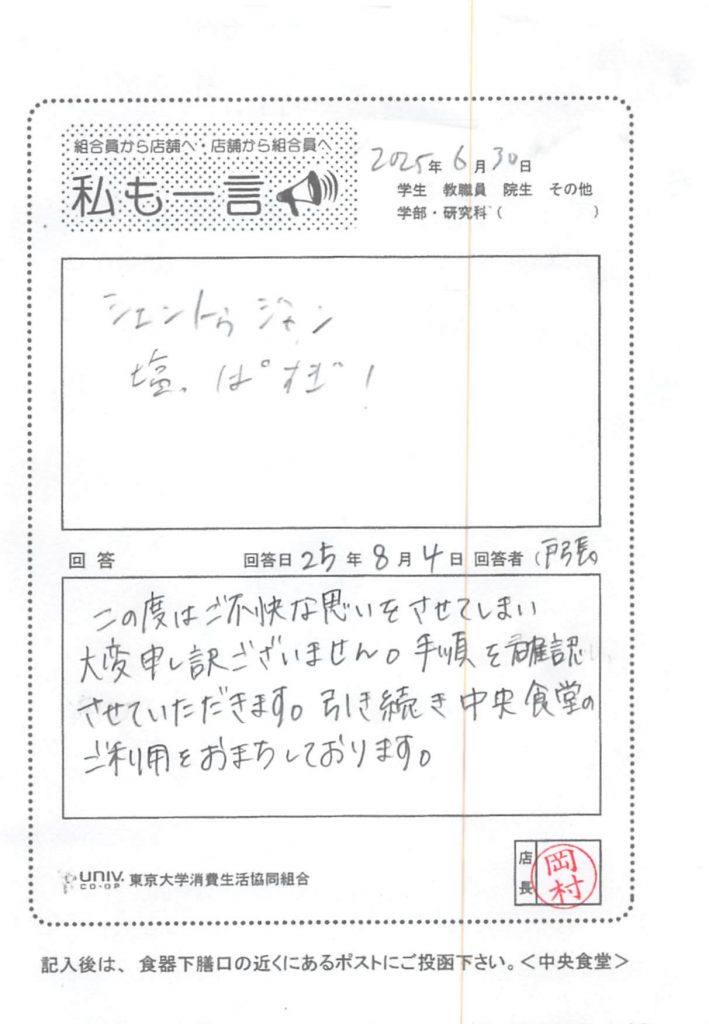 組合員から店舗へ・店舗から組合員へ
私も一言
2025年6月30日
学生 教職員 院生 その他
学部・研究科( )
シェントゥジャン
塩っぱすぎ!
回答 回答日25年8月4日 回答者(戸張)
この度はご不快な思いをさせてしまい
大変申し訳ございません。手順を確認
させていただきます。引き続き中央食堂の
ご利用をおまちしております。
店長
岡村
UNIV. CO-OP 東京大学消費生活協同組合
記入後は、食器下膳口の近くにあるポストにご投函下さい。<中央食堂>